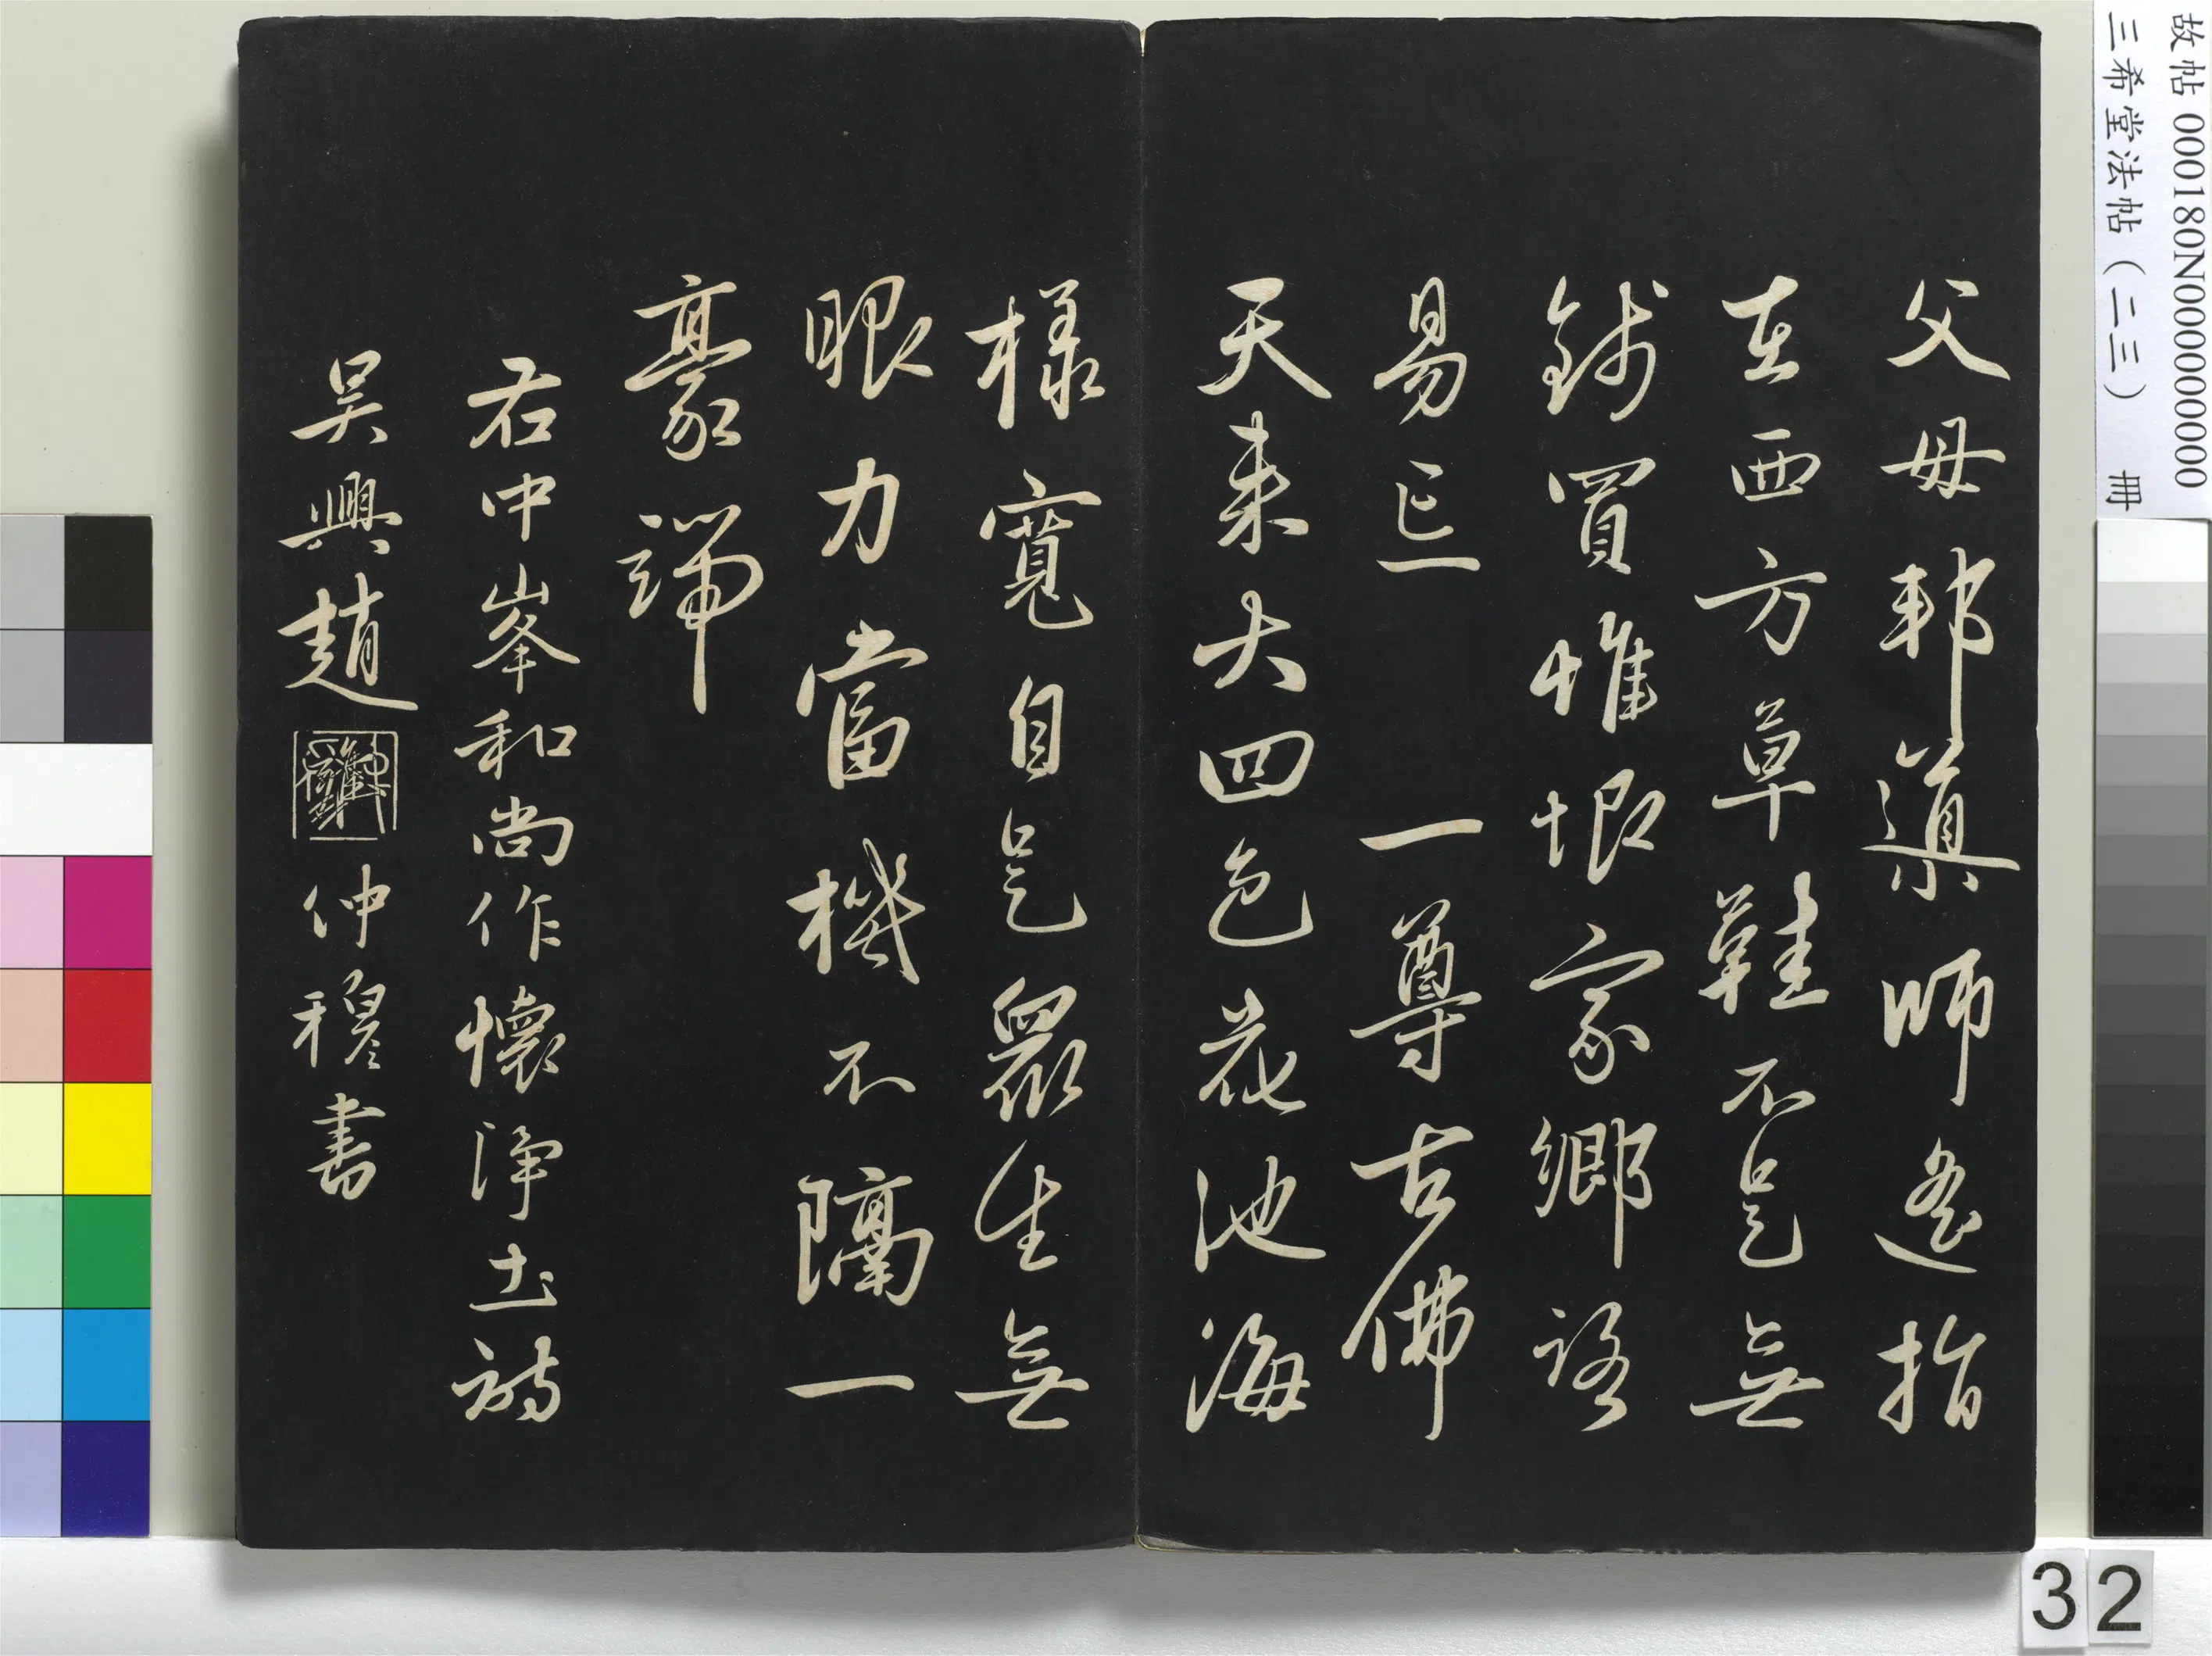 父母邦導師遙指
在西方草鞋不是無
錢買惟恨家鄉路
易忘 一尊古佛
天來大四色花池海
樣寬自是眾生無
眼力當機不隔一
豪端
右中峯和尚作懷淨土詩
吳興趙 仲穆書
故帖 000180N000000000
三希堂法帖（二三） 冊
32